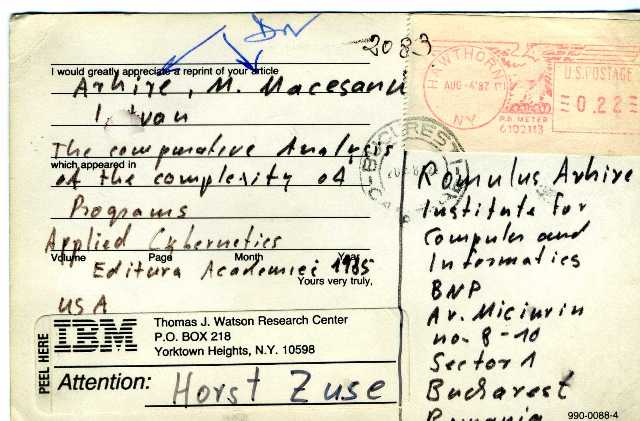 2083
I would greatly appreciate a reprint of your article
Arhire, M. Macesanu
The comparative Analysis
which appeared in
of the complexity of
Programs
Applied Cybernetics
Volume Page Month Year
Editura Academiei 1985
Yours very truly,
USA
PEEL HERE
IBM
Thomas J. Watson Research Center
P.O. BOX 218
Yorktown Heights, N.Y. 10598
Attention: Horst Zuse
HAWTHORNE
AUG -4'87
NY
U.S. POSTAGE
0.22
P.B. METER
6102113
BUCUREȘTI
Romulus Arhire
Institute for
Computer and
Informatics
BNP
Av. Miciurin
no. 8-10
Sector 1
Bucharest
Romania
990-0088-4